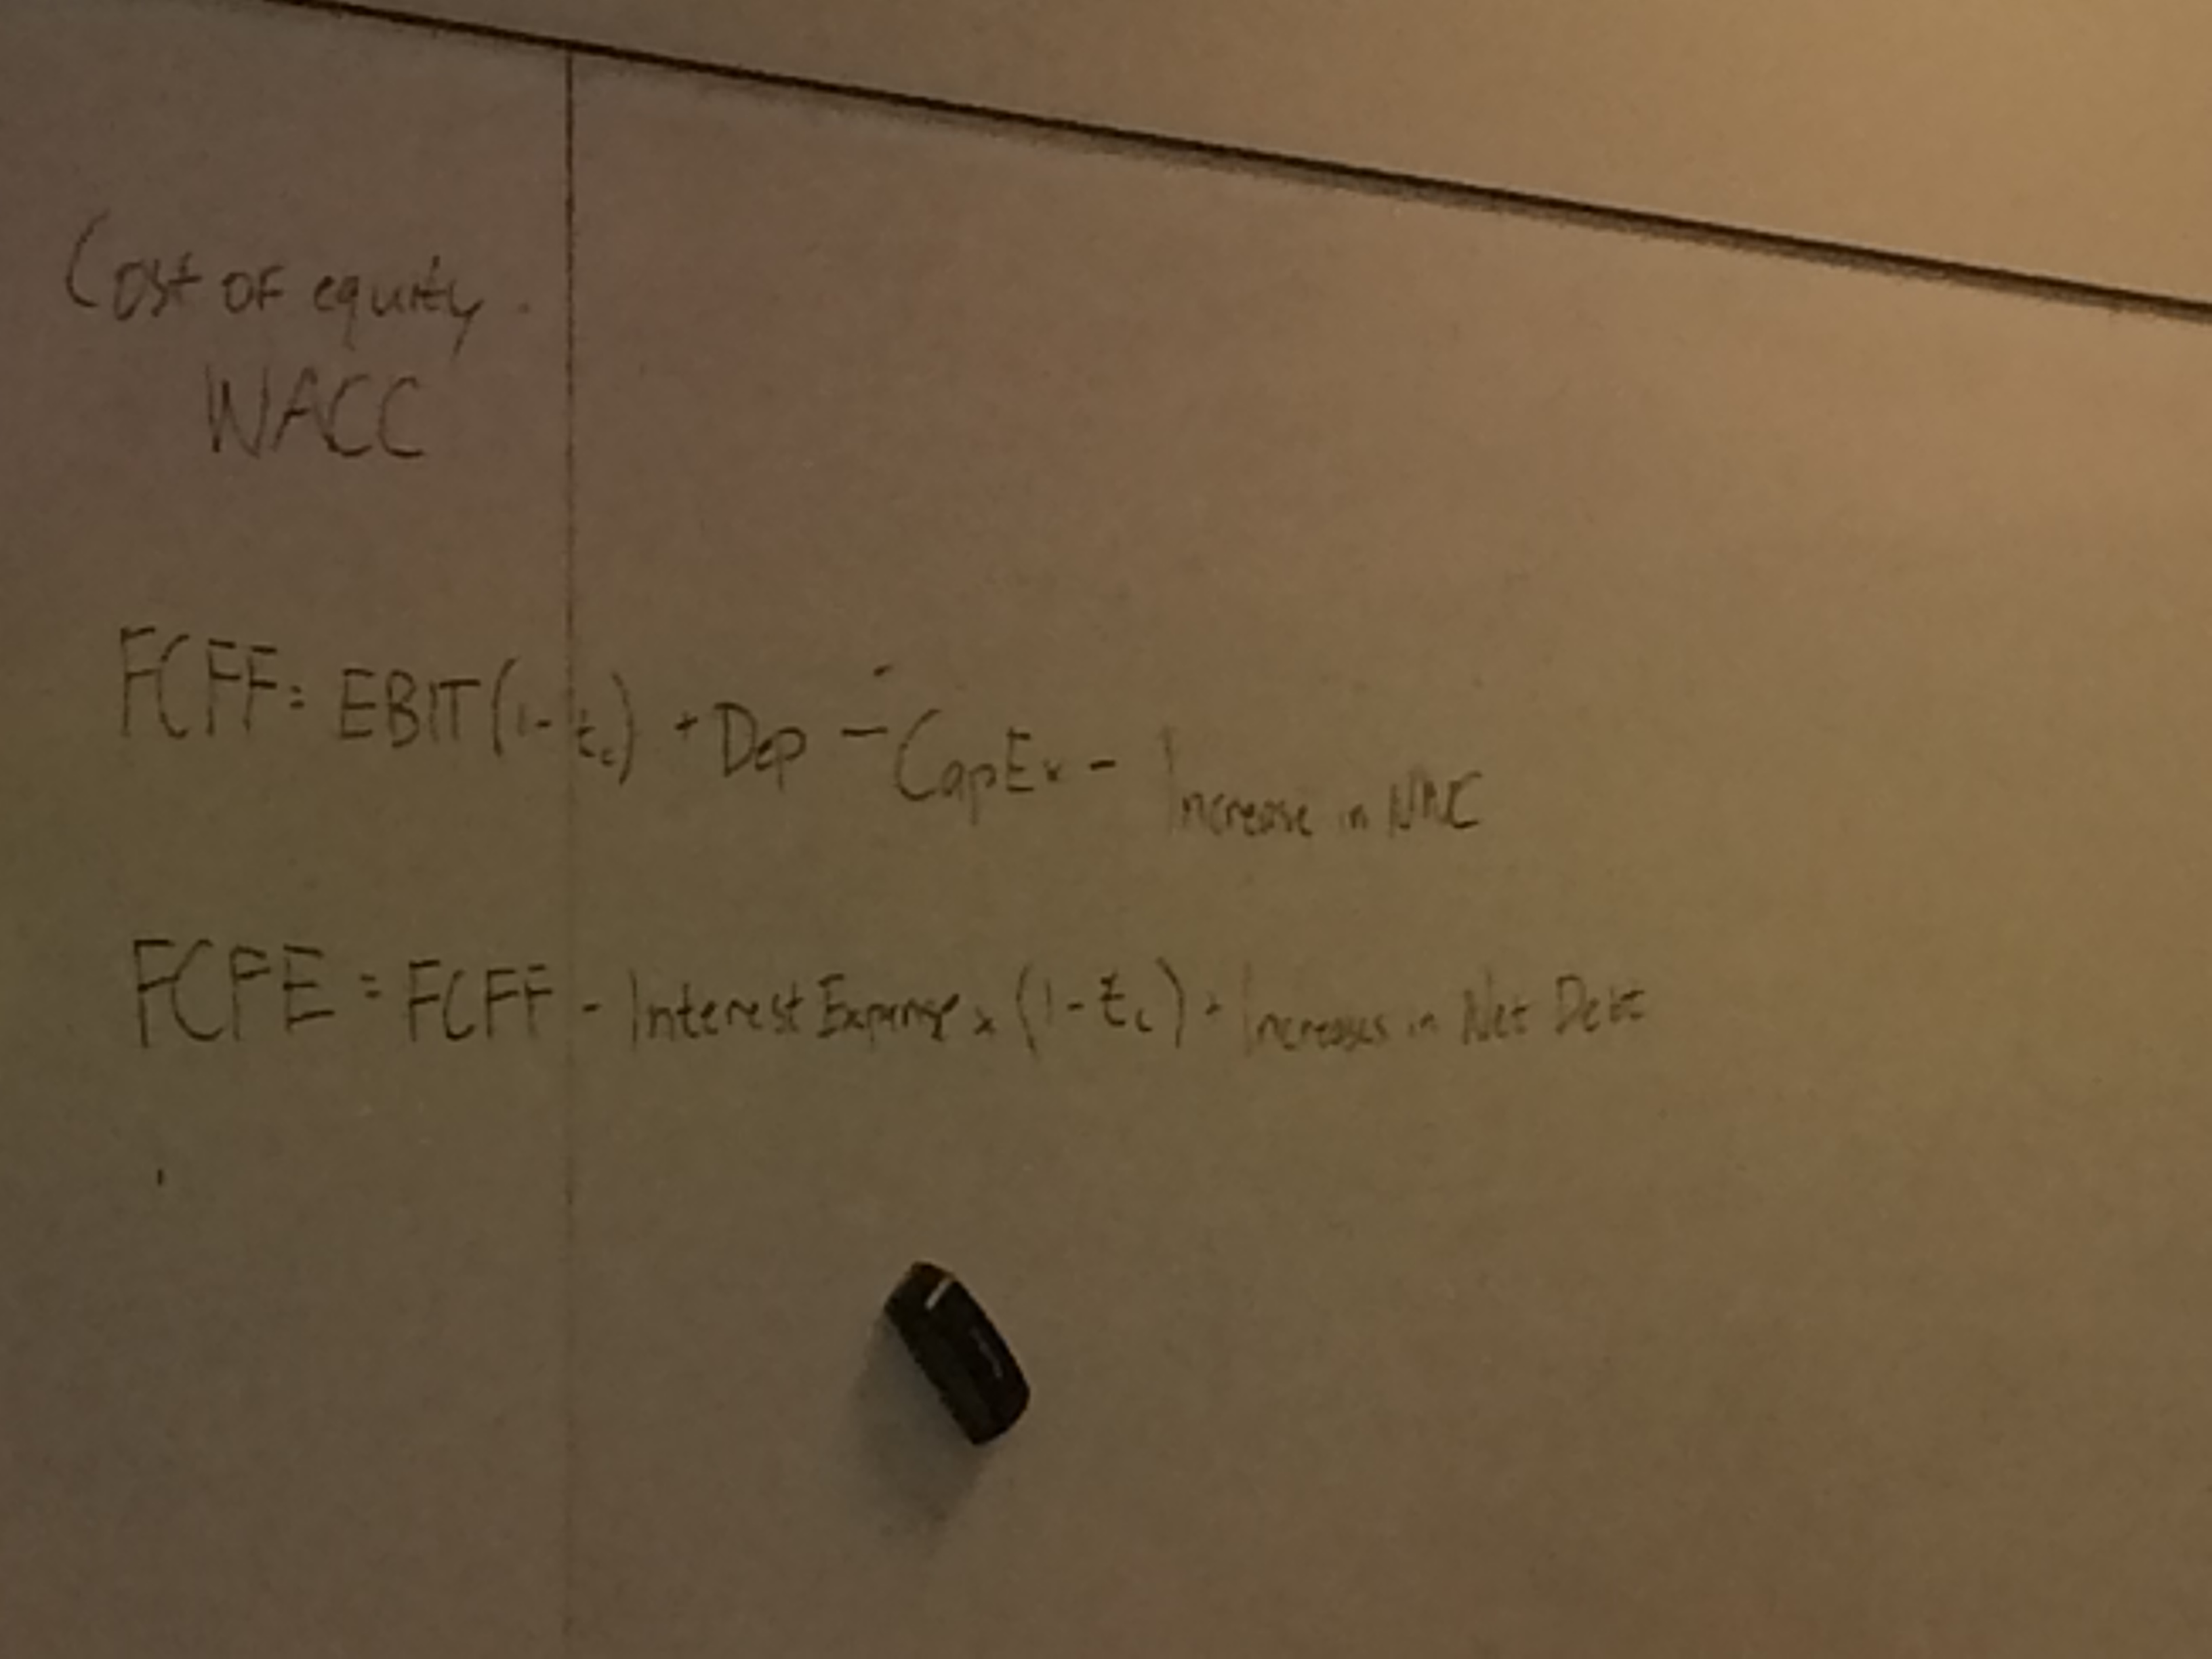 Cost of equity.
WACC
FCFF = EBIT(1-tc) + Dep - CapEx - Increase in NWC
FCFE = FCFF - Interest Expense x (1-tc) + Increases in Net Debt